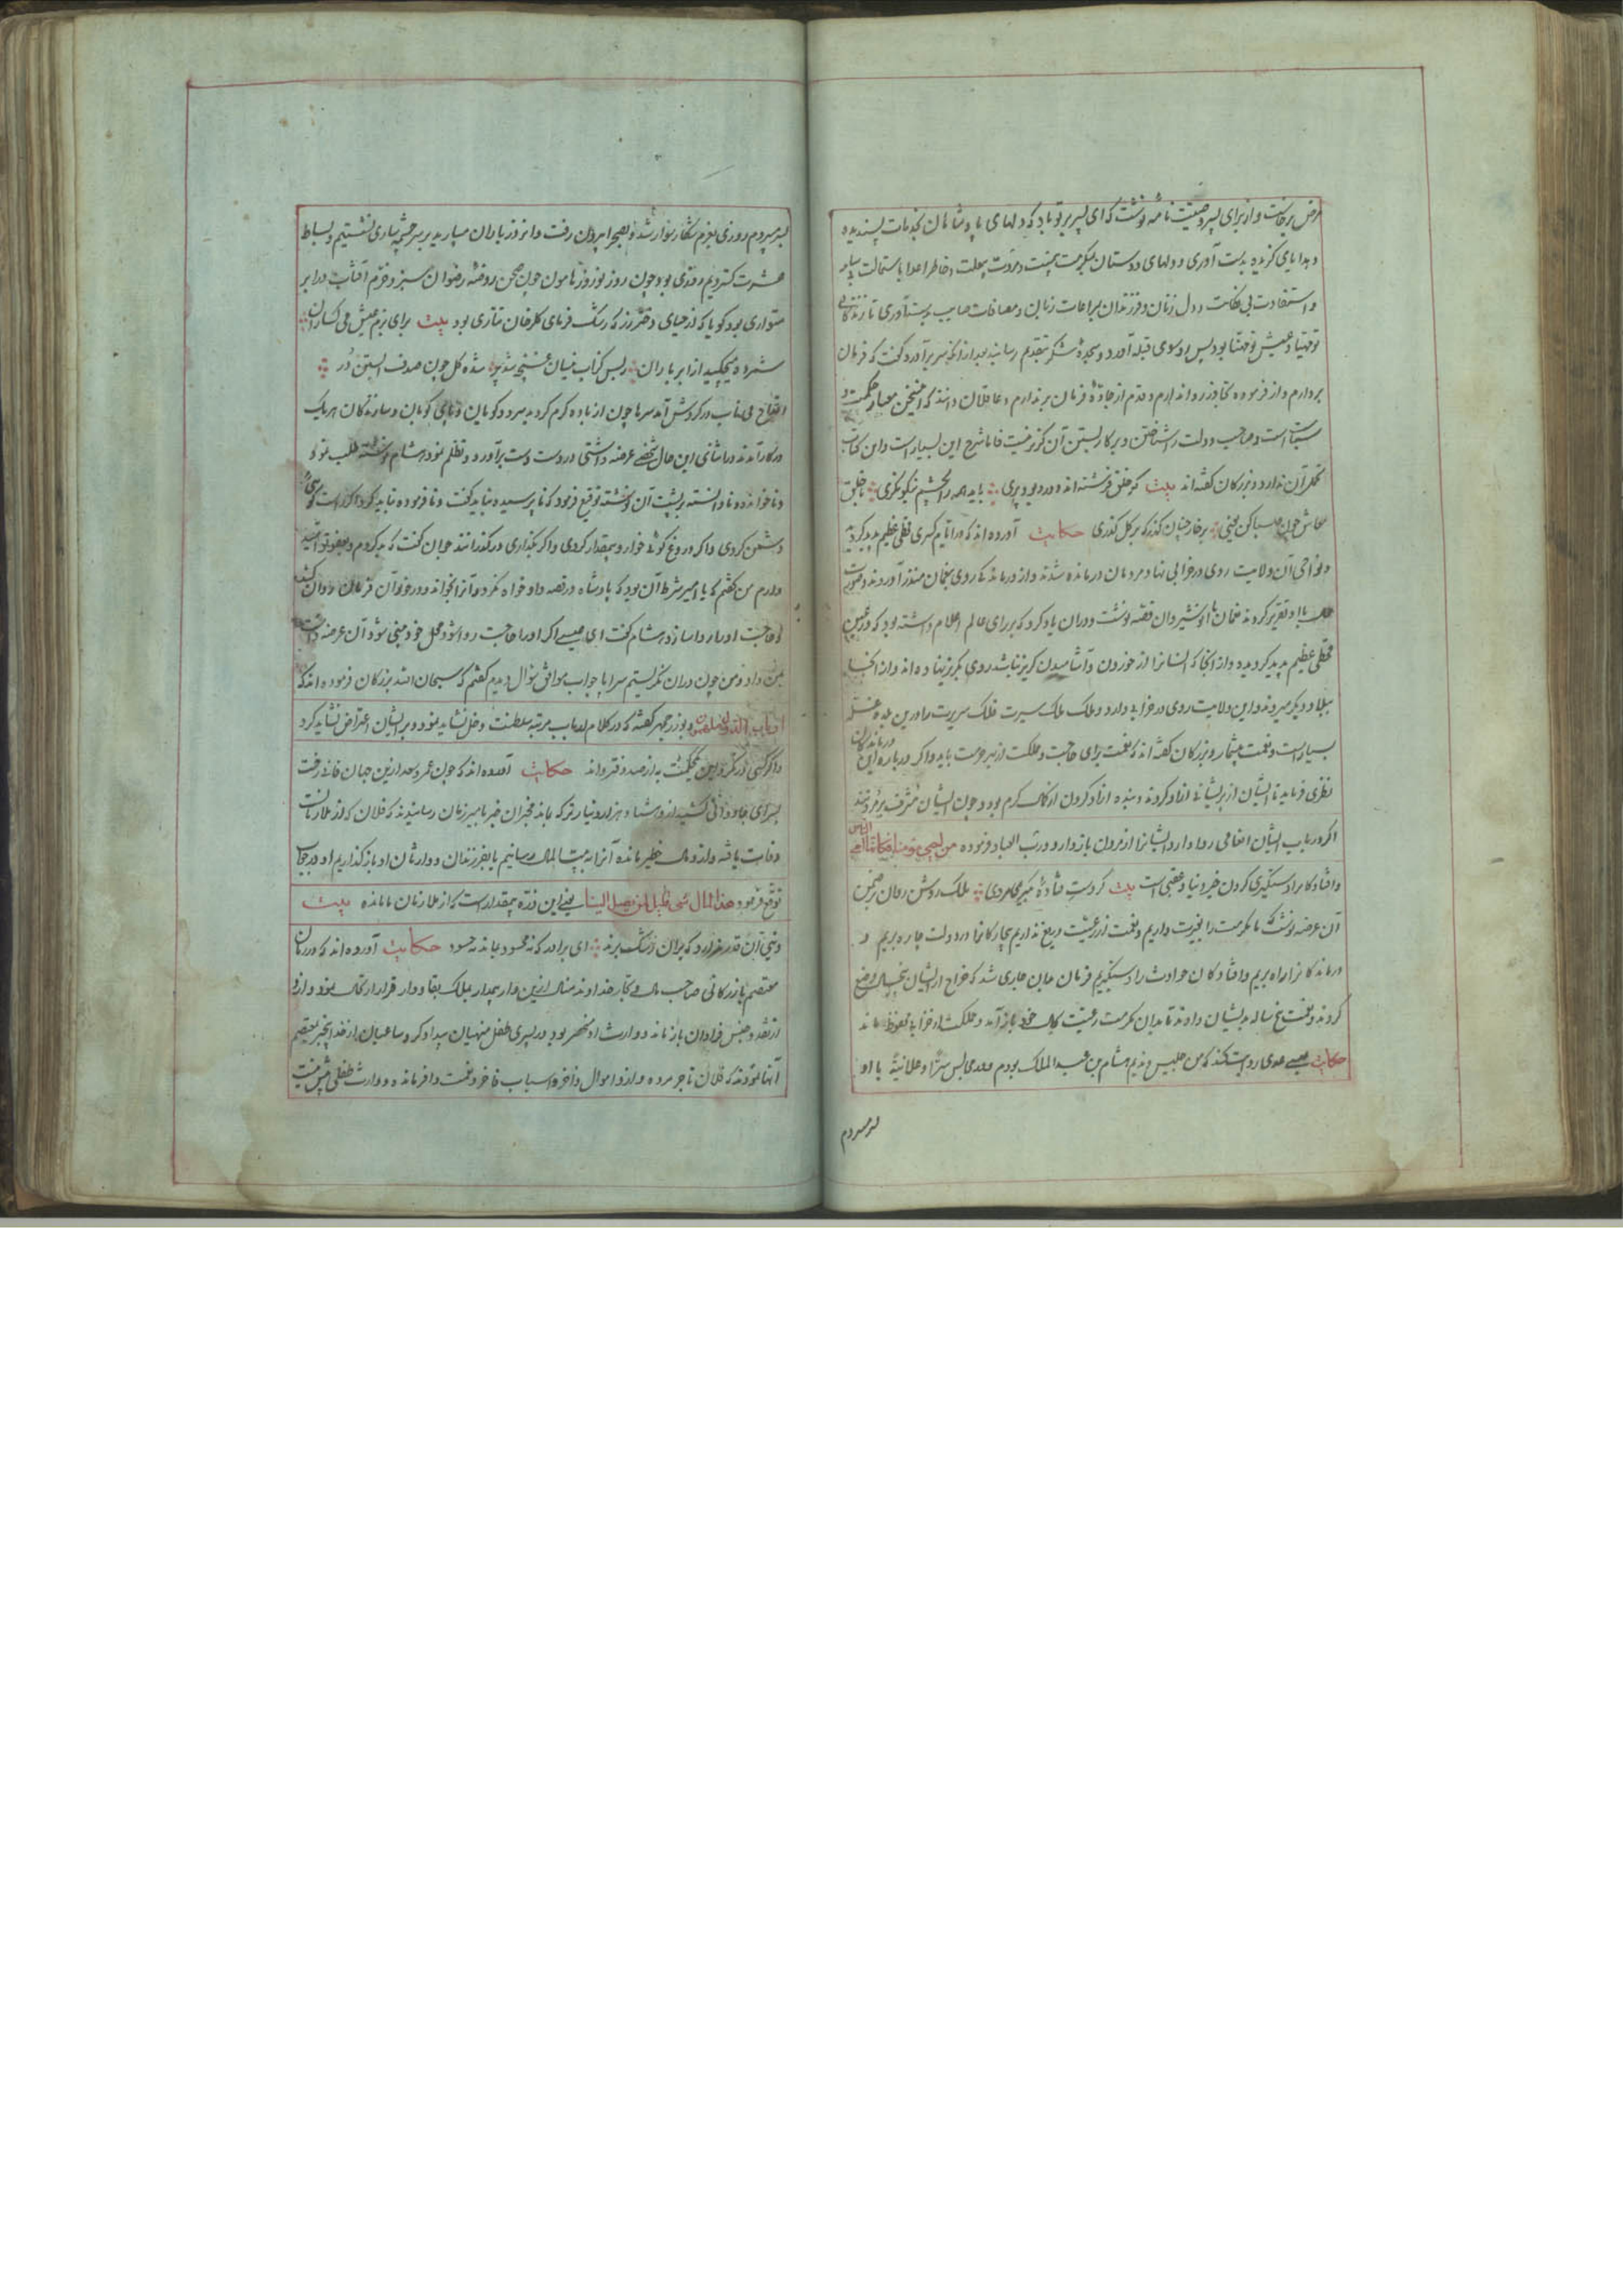 مرض برخاست و از برای پسر وصیت نامه نوشت که ای پسر بر تو باد که دلهای پادشاهان بخدمات پسندیده
و هدایای گزیده بدست آوری و دلهای دوستان بمکرمت و مروت و خاطر اعدا باستمالت
و استفادت بی نکایت و دل زنان و فرزندان بمراعات زبان و مصافات بدست آوری تا زندگانی
بود پس او سوی قبله آورد و سجده شکر بتقدیم رسانید بعد از آنکه سر برآورد گفت که فرمان
بردارم و از فرموده تجاوز روا ندارم و قدم از جاده فرمان برندارم و عاقلان دانند که این سخن معیار حکمت و
است و صاحب دولت را شناختن و برکار بستن آن گزیر نیست فاما شرح این بسیار است و این کتاب
تحمل آن ندارد و بزرگان گفته اند بیت گر خلق فرشته اند و در دیو و پری باید همه را بچشم نیکو نگری با خلق
معاش چون صبا کن یعنی بر خار چنان گذر که بر گل گذری حکایت آورده اند که در ایام کسری قحطی عظیم پدید گردید
و نواحی آن ولایت روی در خرابی نهاد مردمان درمانده شدند و از درماندگی روی بنعمان منذر آوردند و صورت
حال با او تقریر کردند نعمان بانوشیروان قصه نوشت و در آن یاد کرد که بر رای عالم اعلام داشته بود که در زمین
قحطی عظیم پدید گردیده و از آنجا که انسانرا از خوردن و آشامیدن گریز نباشد روی بگریز نهاده اند و از اینجا
ببلاد دیگر میروند و این ولایت روی در خرابی دارد و ملک ملک سیرت فلک سریرت را درین بلده غله
بسیار است و نعمت بیشمار و بزرگان گفته اند که نعمت برای حاجت و مملکت از بهر حرمت باید و اگر درباره این درماندگان
نظری فرماید تا ایشان از پریشانی آزاد گردند و بنده آزاد کردن از کمال کرم بود و چون ایشان
اگر در باب ایشان انعامی روا دارد و ایشانرا از مردن باز دارد و رب العباد فرموده من احیی نفسا فکانما احیی الناس
و افتادگانرا دستگیری کردن خیر دنیا و عقبی است بیت گر دست فتادهٔ بگیری مردی ملک روشن روان بر ضمن
آن عرضه نوشت که ما مکرمت را بخیریت داریم و نعمت از رعیت دریغ نداریم بیچارگانرا در دولت چاره بریم و
درماندگانرا راه بریم و افتادگان حوادث را دستگیریم فرمان جاری شد که خراج از ایشان وضع
کردند و نعمت پنج ساله بدیشان دادند تا بدان مکرمت رعیت بحال خود باز آمد و مملکت از خرابی محفوظ ماند
حکایت عیسی عدی روایت کند که من جلیس و ندیم هشام بن عبدالملک بودم و سرا و علانیة با او
بسر میبردم
بسر میبردم روزی بعزم شکار سوار شد و بصحرا بیرون رفت و آنروز باران میبارید بر سر چشمه ساری نشستیم و بساط
عشرت گستردیم و روزی بود چون روز نوروز هامون چون صحن روضه رضوان سبز و خرم آفتاب در ابر
متواری بود گویا که از حیای دختر رز که رشک فرمای گلرخان تتاری بود بیت برای بزم عیش می گساران
ستاره میچکید از ابر باران ز بس کز آب نیسان غنچه شد پر شده گل چون صدف آبستن در
اقداح می ناب در گردش آمد سرها چون از باده گرم گردید سرودگویان و پای کوبان و سازندگان هر یک
در کار آمدند در اثنای این حال شخصی عرضه داشتی در دست دست برآورد و تظلم نمود هشام نوشته طلب نمود
و ناخوانده و نادانسته بر پشت آن نوشته توقیع فرمود که ناپرسیده نباید گفت و نافرموده نباید کرد و اگر راست گوئی
دشمن گردی و اگر دروغ گوئی خوار و بیمقدار گردی و اگر بگذاری درگذرانند جوان گفت که بد کردم و بعفو تو امید
دارم من گفتم که یا امیر شرط آن بود که پادشاه در قصه دادخواه نگرد و آنرا بخواند و در خور آن فرمان روان کند
تا حاجت او روا سازد هشام گفت ای عیسی اگر او را حاجت روا شود محل خود مبنی شود آن عرضه داشت
بمن داد و من چون در آن نگریستم سراپا جواب موافق سؤال دیدم گفتم که سبحان الله بزرگان فرموده اند که
ارباب الدول ملهمون و بوزرجمهر گفته که در کلام ارباب مرتبه سلطنت دخل نشاید نمود و بر ایشان اعتراض نشاید کرد
و اگر کسی در نگرد این یک نکته به از صد دفتر داند حکایت آورده اند که چون عمرو سعد ازین جهان فانی رفت
بسرای جاودانی کشید ازو هشتاد هزار دینار ترکه باند مخبران خبر بامیر زمان رسانیدند که فلان که از ملازمانت
وفات یافته و ازو مال خطیر مانده آنرا به بیت المال رسانیم یا بفرزندان و وارثان او باز گذاریم او در جواب
توقیع فرمود هذا المال شیء قلیل لمن یصل الینا یعنی این ذره بیمقدار است که از ملازمان ما مانده بیت
دنیی آن قدر ندارد که بر آن رشک برند ای برادر که نه محسود بماند نه حسود حکایت آورده اند که در زمان
معتصم بازرگانی صاحب مال و تجار خداوند منال ازین دار بیمدار بملک بقا و دار قرار ارتحال نمود و ازو
از نقد و جنس فراوان باز ماند و وارث او منحصر بود در پسری طفل منهیان بیدادگر و ساعیان از خدا بیخبر بمعتصم
انها نمودند که فلان تاجر مرده و ازو اموال ذاخره و اسباب فاخر و نعمت وافر مانده و وارث طفلی بیش نیست